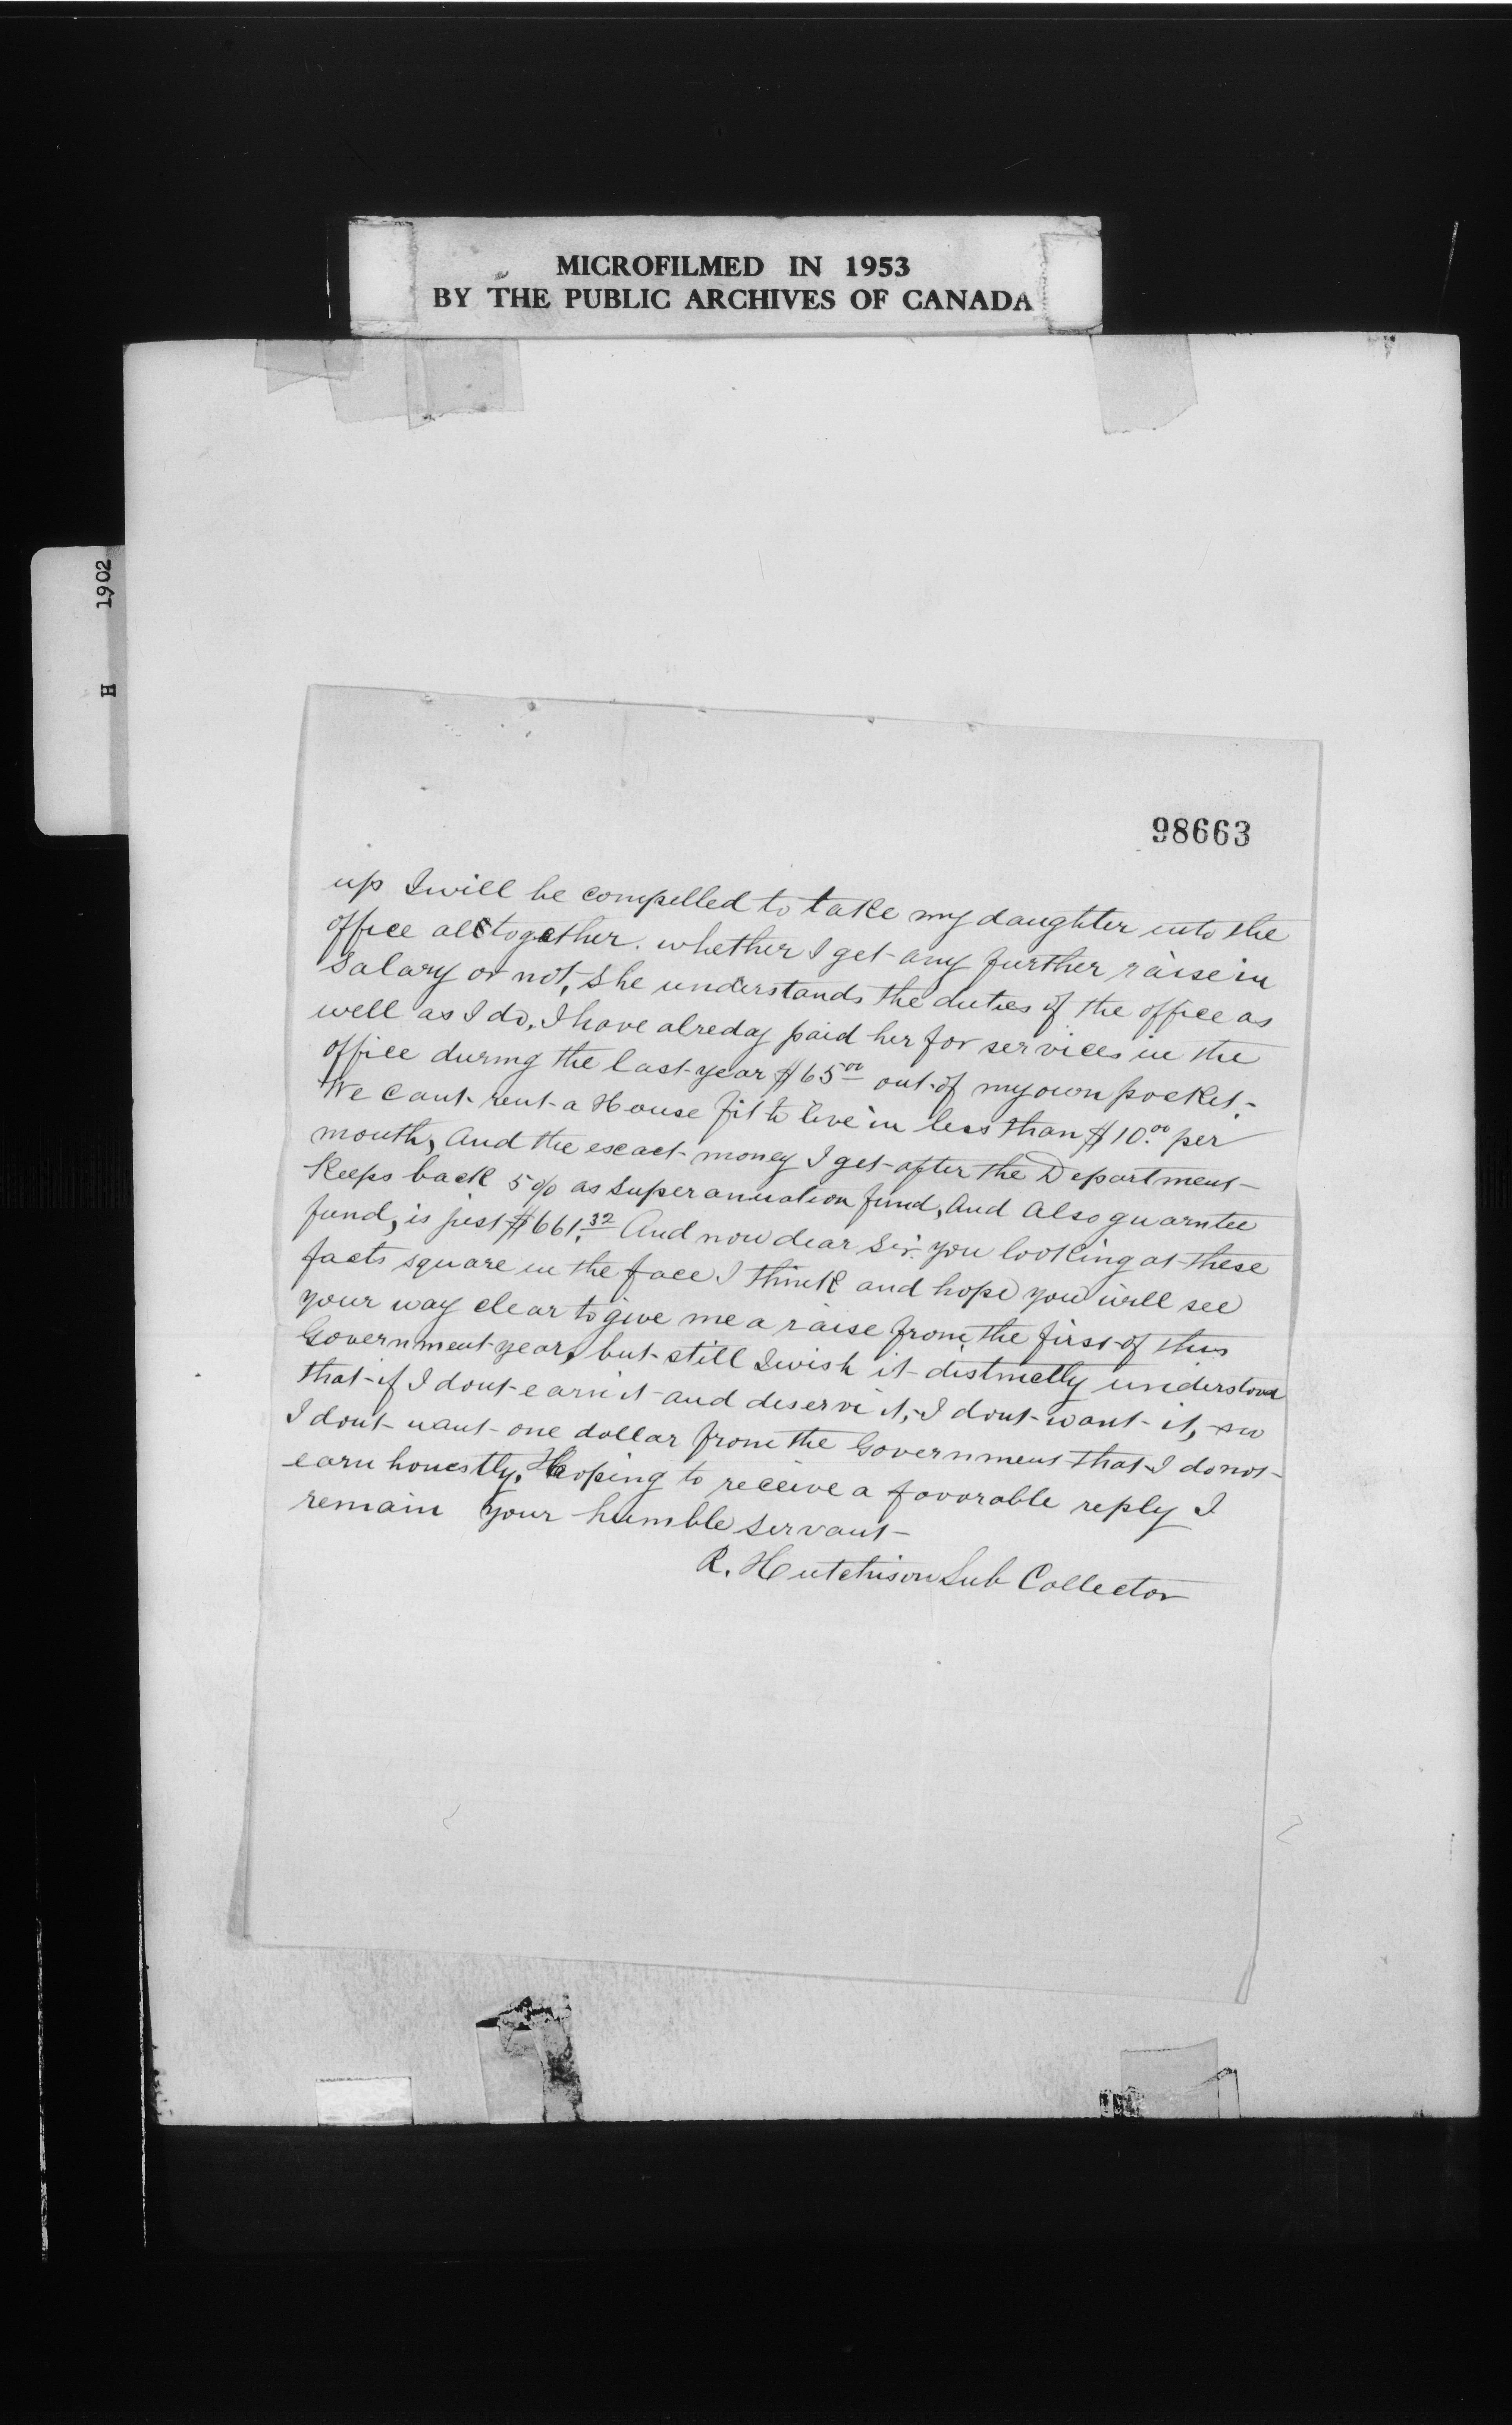 MICROFILMED IN 1953
BY THE PUBLIC ARCHIVES OF CANADA
1902
H
98663
up I will be compelled to take my daughter into the
office alltogether. whether I get any further raise in
Salary or not, She understands the duties of the office as
well as I do, I have alreday paid her for services in the
office during the last year $65.00 out of my own pocket,
We cant rent a House fit to live in less than $10.00 per
month, And the exact money I get after the Department
keeps back 5% as Superanuation fund, And Also guarntee
fund, is just $661.32 And now dear Sir. you looking at these
facts square in the face I think and hope you will see
your way clear to give me a raise from the first of this
Government year, but still I wish it distinctly understood
that if I dont earn it and deserve it, I dont want it,
I dont want one dollar from the Government that I do not
earn honestly, Hoping to receive a favorable reply I
remain your humble Servant
R. Hutchison Sub Collector